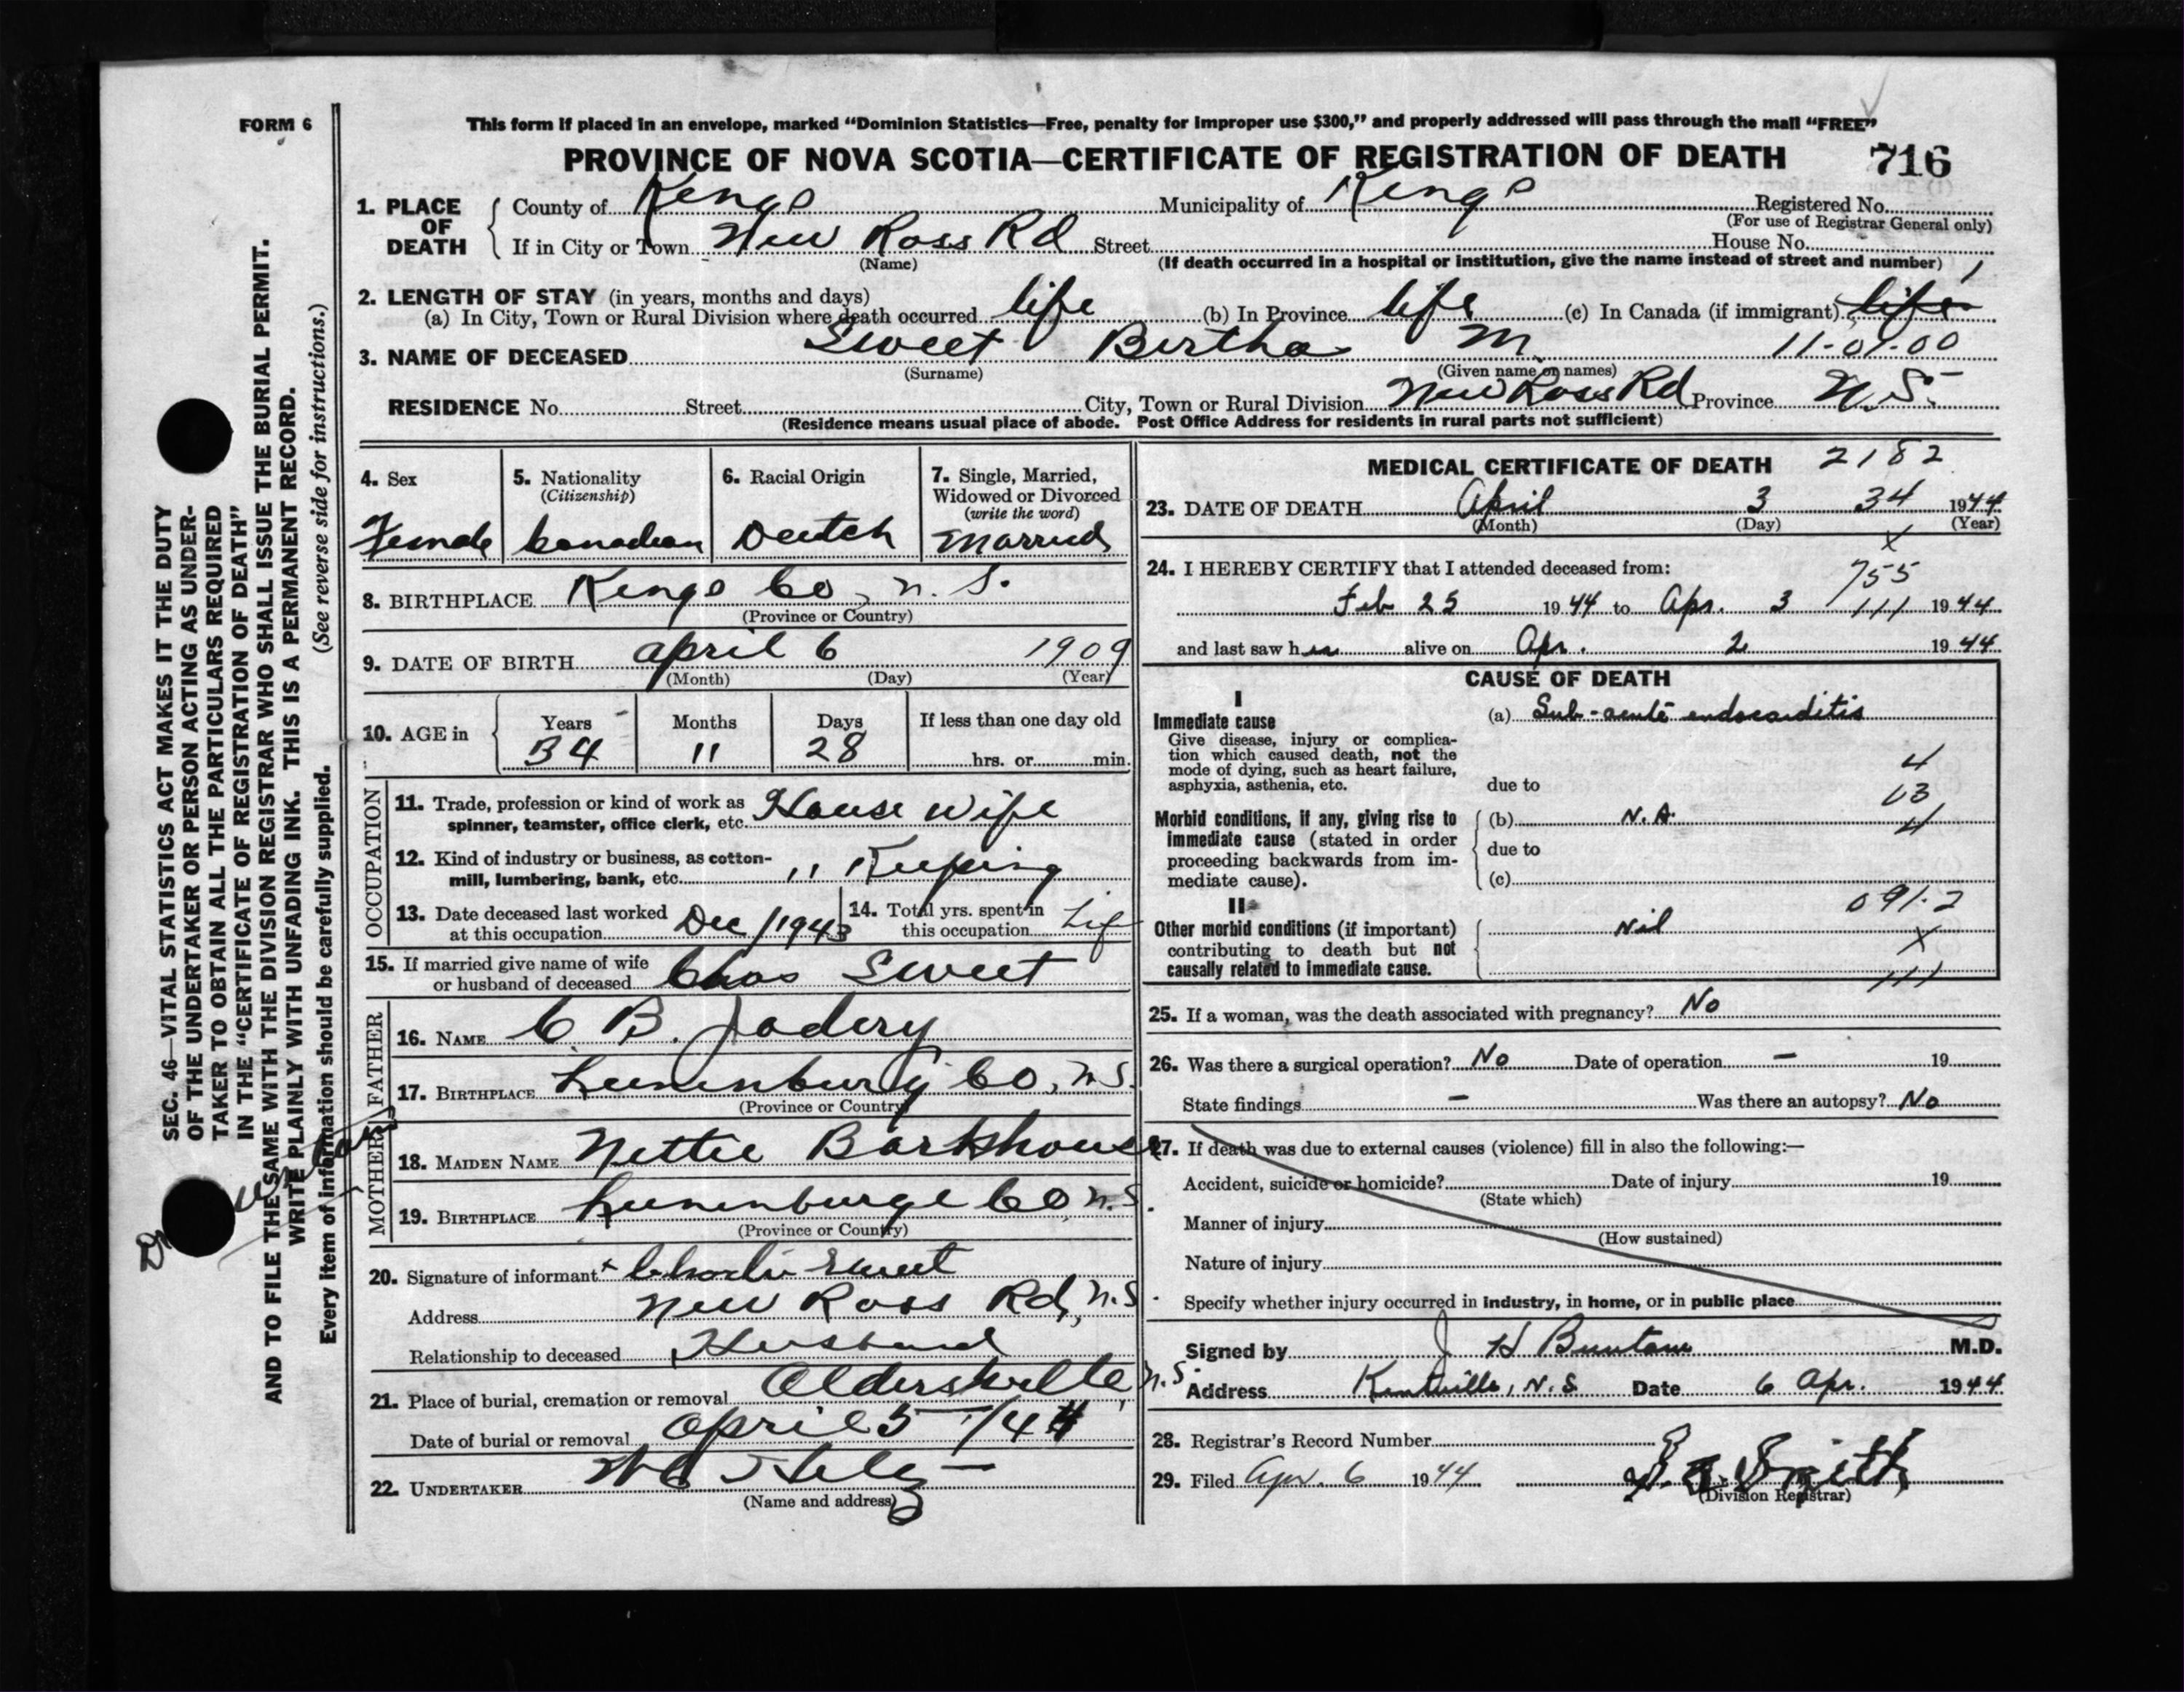 FORM 6
This form if placed in an envelope, marked “Dominion Statistics—Free, penalty for improper use $300,” and properly addressed will pass through the mail “FREE”
PROVINCE OF NOVA SCOTIA—CERTIFICATE OF REGISTRATION OF DEATH 716
1. PLACE OF DEATH County of Kings Municipality of Kings Registered No.
(For use of Registrar General only)
If in City or Town New Ross Rd Street House No.
(Name) (If death occurred in a hospital or institution, give the name instead of street and number)
2. LENGTH OF STAY (in years, months and days)
(a) In City, Town or Rural Division where death occurred life (b) In Province life (c) In Canada (if immigrant) life
3. NAME OF DECEASED Sweet Bertha M. 11-01-00
(Surname) (Given name or names)
RESIDENCE No. Street City, Town or Rural Division New Ross Rd Province N.S.
(Residence means usual place of abode. Post Office Address for residents in rural parts not sufficient)
4. Sex 5. Nationality (Citizenship) 6. Racial Origin 7. Single, Married, Widowed or Divorced (write the word)
Female Canadian Deutch Married
8. BIRTHPLACE Kings Co, N.S.
(Province or Country)
9. DATE OF BIRTH April 6 1909
(Month) (Day) (Year)
10. AGE in Years Months Days If less than one day old
34 11 28 hrs. or min.
OCCUPATION
11. Trade, profession or kind of work as spinner, teamster, office clerk, etc. House Wife
12. Kind of industry or business, as cotton-mill, lumbering, bank, etc. " Keeping
13. Date deceased last worked at this occupation Dec/1943 14. Total yrs. spent in this occupation Life
15. If married give name of wife or husband of deceased Chas Sweet
FATHER
16. NAME C B. Jodery
17. BIRTHPLACE Lunenburg Co, N.S.
(Province or Country)
MOTHER
18. MAIDEN NAME Nettie Barkhouse
19. BIRTHPLACE Lunenburge Co, N.S.
(Province or Country)
20. Signature of informant x Charlie Sweet
Address New Ross Rd, N.S.
Relationship to deceased Husband
21. Place of burial, cremation or removal Aldersville, N.S.
Date of burial or removal April 5/44
22. UNDERTAKER
(Name and address)
MEDICAL CERTIFICATE OF DEATH 2182
23. DATE OF DEATH April 3 34 1944
(Month) (Day) (Year)
x
24. I HEREBY CERTIFY that I attended deceased from: 755
Feb 25 1944 to Apr. 3 111 1944
and last saw her alive on Apr. 2 1944
CAUSE OF DEATH
I
Immediate cause (a) Sub-acute endocarditis
Give disease, injury or complication which caused death, not the mode of dying, such as heart failure, asphyxia, asthenia, etc.
4
due to
13
Morbid conditions, if any, giving rise to immediate cause (stated in order proceeding backwards from immediate cause).
(b) N.A. 4
due to
(c)
II 091.2
Other morbid conditions (if important) contributing to death but not causally related to immediate cause. Nil
x
111
25. If a woman, was the death associated with pregnancy? No
26. Was there a surgical operation? No Date of operation — 19
State findings — Was there an autopsy? No
27. If death was due to external causes (violence) fill in also the following:—
Accident, suicide or homicide? Date of injury 19
(State which)
Manner of injury
(How sustained)
Nature of injury
Specify whether injury occurred in industry, in home, or in public place
Signed by J H Buntain M.D.
Address Kentville, N.S Date 6 Apr. 1944
28. Registrar's Record Number
29. Filed Apr. 6 1944 Smith
(Division Registrar)
SEC. 46—VITAL STATISTICS ACT MAKES IT THE DUTY
OF THE UNDERTAKER OR PERSON ACTING AS UNDER-
TAKER TO OBTAIN ALL THE PARTICULARS REQUIRED
IN THE “CERTIFICATE OF REGISTRATION OF DEATH”
AND TO FILE THE SAME WITH THE DIVISION REGISTRAR WHO SHALL ISSUE THE BURIAL PERMIT.
WRITE PLAINLY WITH UNFADING INK. THIS IS A PERMANENT RECORD.
Every item of information should be carefully supplied. (See reverse side for instructions.)